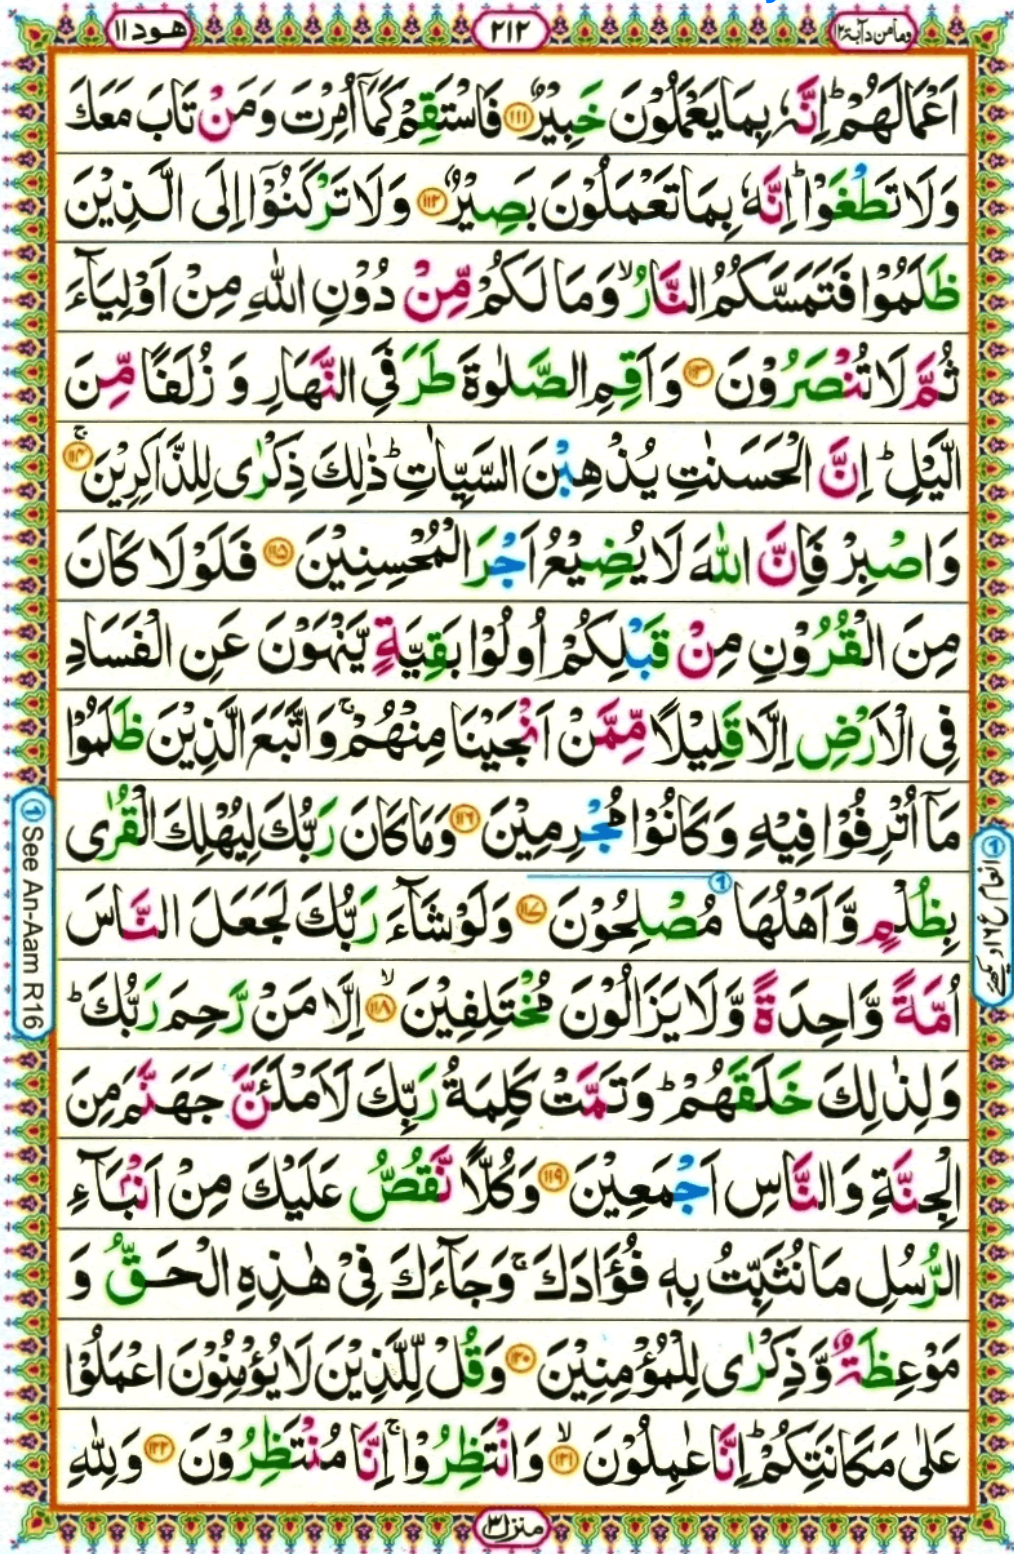 وما من دآبة ١٢
٢١٢
هود ١١
اَعْمَالَهُمْ ؕ اِنَّهٗ بِمَا يَعْمَلُوْنَ خَبِيْرٌ ﴿۱۱۱﴾ فَاسْتَقِمْ كَمَاۤ اُمِرْتَ وَمَنْ تَابَ مَعَكَ
وَلَا تَطْغَوْا ؕ اِنَّهٗ بِمَا تَعْمَلُوْنَ بَصِيْرٌ ﴿۱۱۲﴾ وَلَا تَرْكَنُوْۤا اِلَى الَّذِيْنَ
ظَلَمُوْا فَتَمَسَّكُمُ النَّارُ ۙ وَمَا لَكُمْ مِّنْ دُوْنِ اللّٰهِ مِنْ اَوْلِيَآءَ
ثُمَّ لَا تُنْصَرُوْنَ ﴿۱۱۳﴾ وَاَقِمِ الصَّلٰوةَ طَرَفَيِ النَّهَارِ وَ زُلَفًا مِّنَ
الَّيْلِ ؕ اِنَّ الْحَسَنٰتِ يُذْهِبْنَ السَّيِّاٰتِ ؕ ذٰلِكَ ذِكْرٰى لِلذّٰكِرِيْنَ ۚ ﴿۱۱۴﴾
وَاصْبِرْ فَاِنَّ اللّٰهَ لَا يُضِيْعُ اَجْرَ الْمُحْسِنِيْنَ ﴿۱۱۵﴾ فَلَوْلَا كَانَ
مِنَ الْقُرُوْنِ مِنْ قَبْلِكُمْ اُولُوْا بَقِيَّةٍ يَّنْهَوْنَ عَنِ الْفَسَادِ
فِى الْاَرْضِ اِلَّا قَلِيْلًا مِّمَّنْ اَنْجَيْنَا مِنْهُمْ ۚ وَاتَّبَعَ الَّذِيْنَ ظَلَمُوْا
مَاۤ اُتْرِفُوْا فِيْهِ وَكَانُوْا مُجْرِمِيْنَ ﴿۱۱۶﴾ وَمَا كَانَ رَبُّكَ لِيُهْلِكَ الْقُرٰى
بِظُلْمٍ وَّاَهْلُهَا مُصْلِحُوْنَ ﴿۱۱۷﴾ وَلَوْ شَآءَ رَبُّكَ لَجَعَلَ النَّاسَ
اُمَّةً وَّاحِدَةً وَّلَا يَزَالُوْنَ مُخْتَلِفِيْنَ ۙ ﴿۱۱۸﴾ اِلَّا مَنْ رَّحِمَ رَبُّكَ ؕ
وَلِذٰلِكَ خَلَقَهُمْ ؕ وَتَمَّتْ كَلِمَةُ رَبِّكَ لَاَمْلَئَنَّ جَهَنَّمَ مِنَ
الْجِنَّةِ وَالنَّاسِ اَجْمَعِيْنَ ﴿۱۱۹﴾ وَكُلًّا نَّقُصُّ عَلَيْكَ مِنْ اَنْۢبَآءِ
الرُّسُلِ مَا نُثَبِّتُ بِهٖ فُؤَادَكَ ۚ وَجَآءَكَ فِىْ هٰذِهِ الْحَقُّ وَ
مَوْعِظَةٌ وَّذِكْرٰى لِلْمُؤْمِنِيْنَ ﴿۱۲۰﴾ وَقُلْ لِّلَّذِيْنَ لَا يُؤْمِنُوْنَ اعْمَلُوْا
عَلٰى مَكَانَتِكُمْ ؕ اِنَّا عٰمِلُوْنَ ۙ ﴿۱۲۱﴾ وَانْتَظِرُوْا ۚ اِنَّا مُنْتَظِرُوْنَ ﴿۱۲۲﴾ وَلِلّٰهِ
منزل ٣
See An-Aam R16